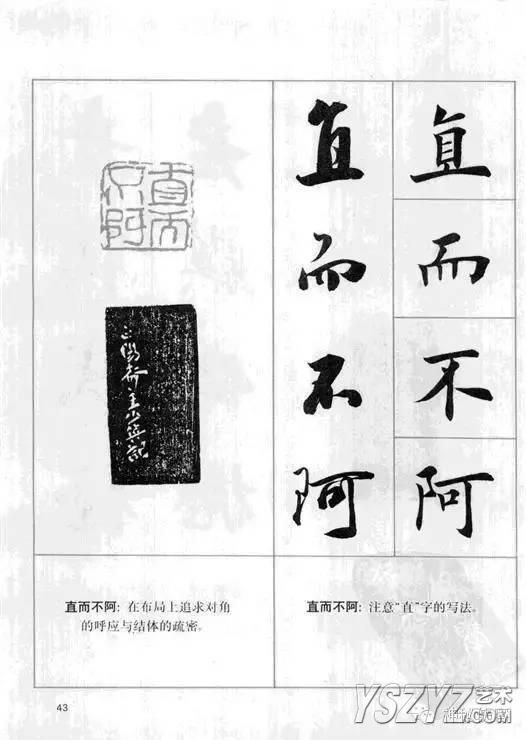 直而不阿
直而不阿
直而不阿
直而不阿：在布局上追求对角
的呼应与结体的疏密。
直而不阿：注意“直”字的写法。
43
YSZYZ艺术
.COM